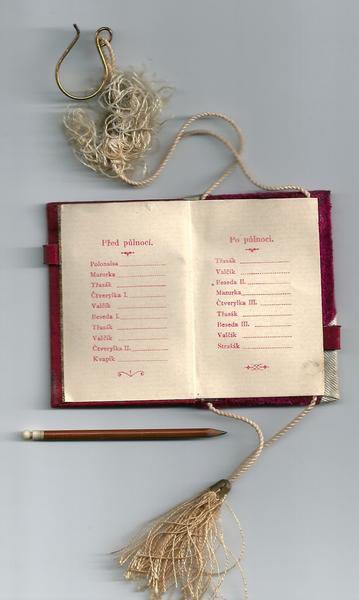 Před půlnocí.
Polonaisa
Mazurka
Třasák
Čtverylka I.
Valčík
Beseda I.
Třasák
Valčík
Čtverylka II.
Kvapík
Po půlnoci.
Třasák
Valčík
Beseda II.
Mazurka
Čtverylka III.
Třasák
Beseda III.
Valčík
Strašák